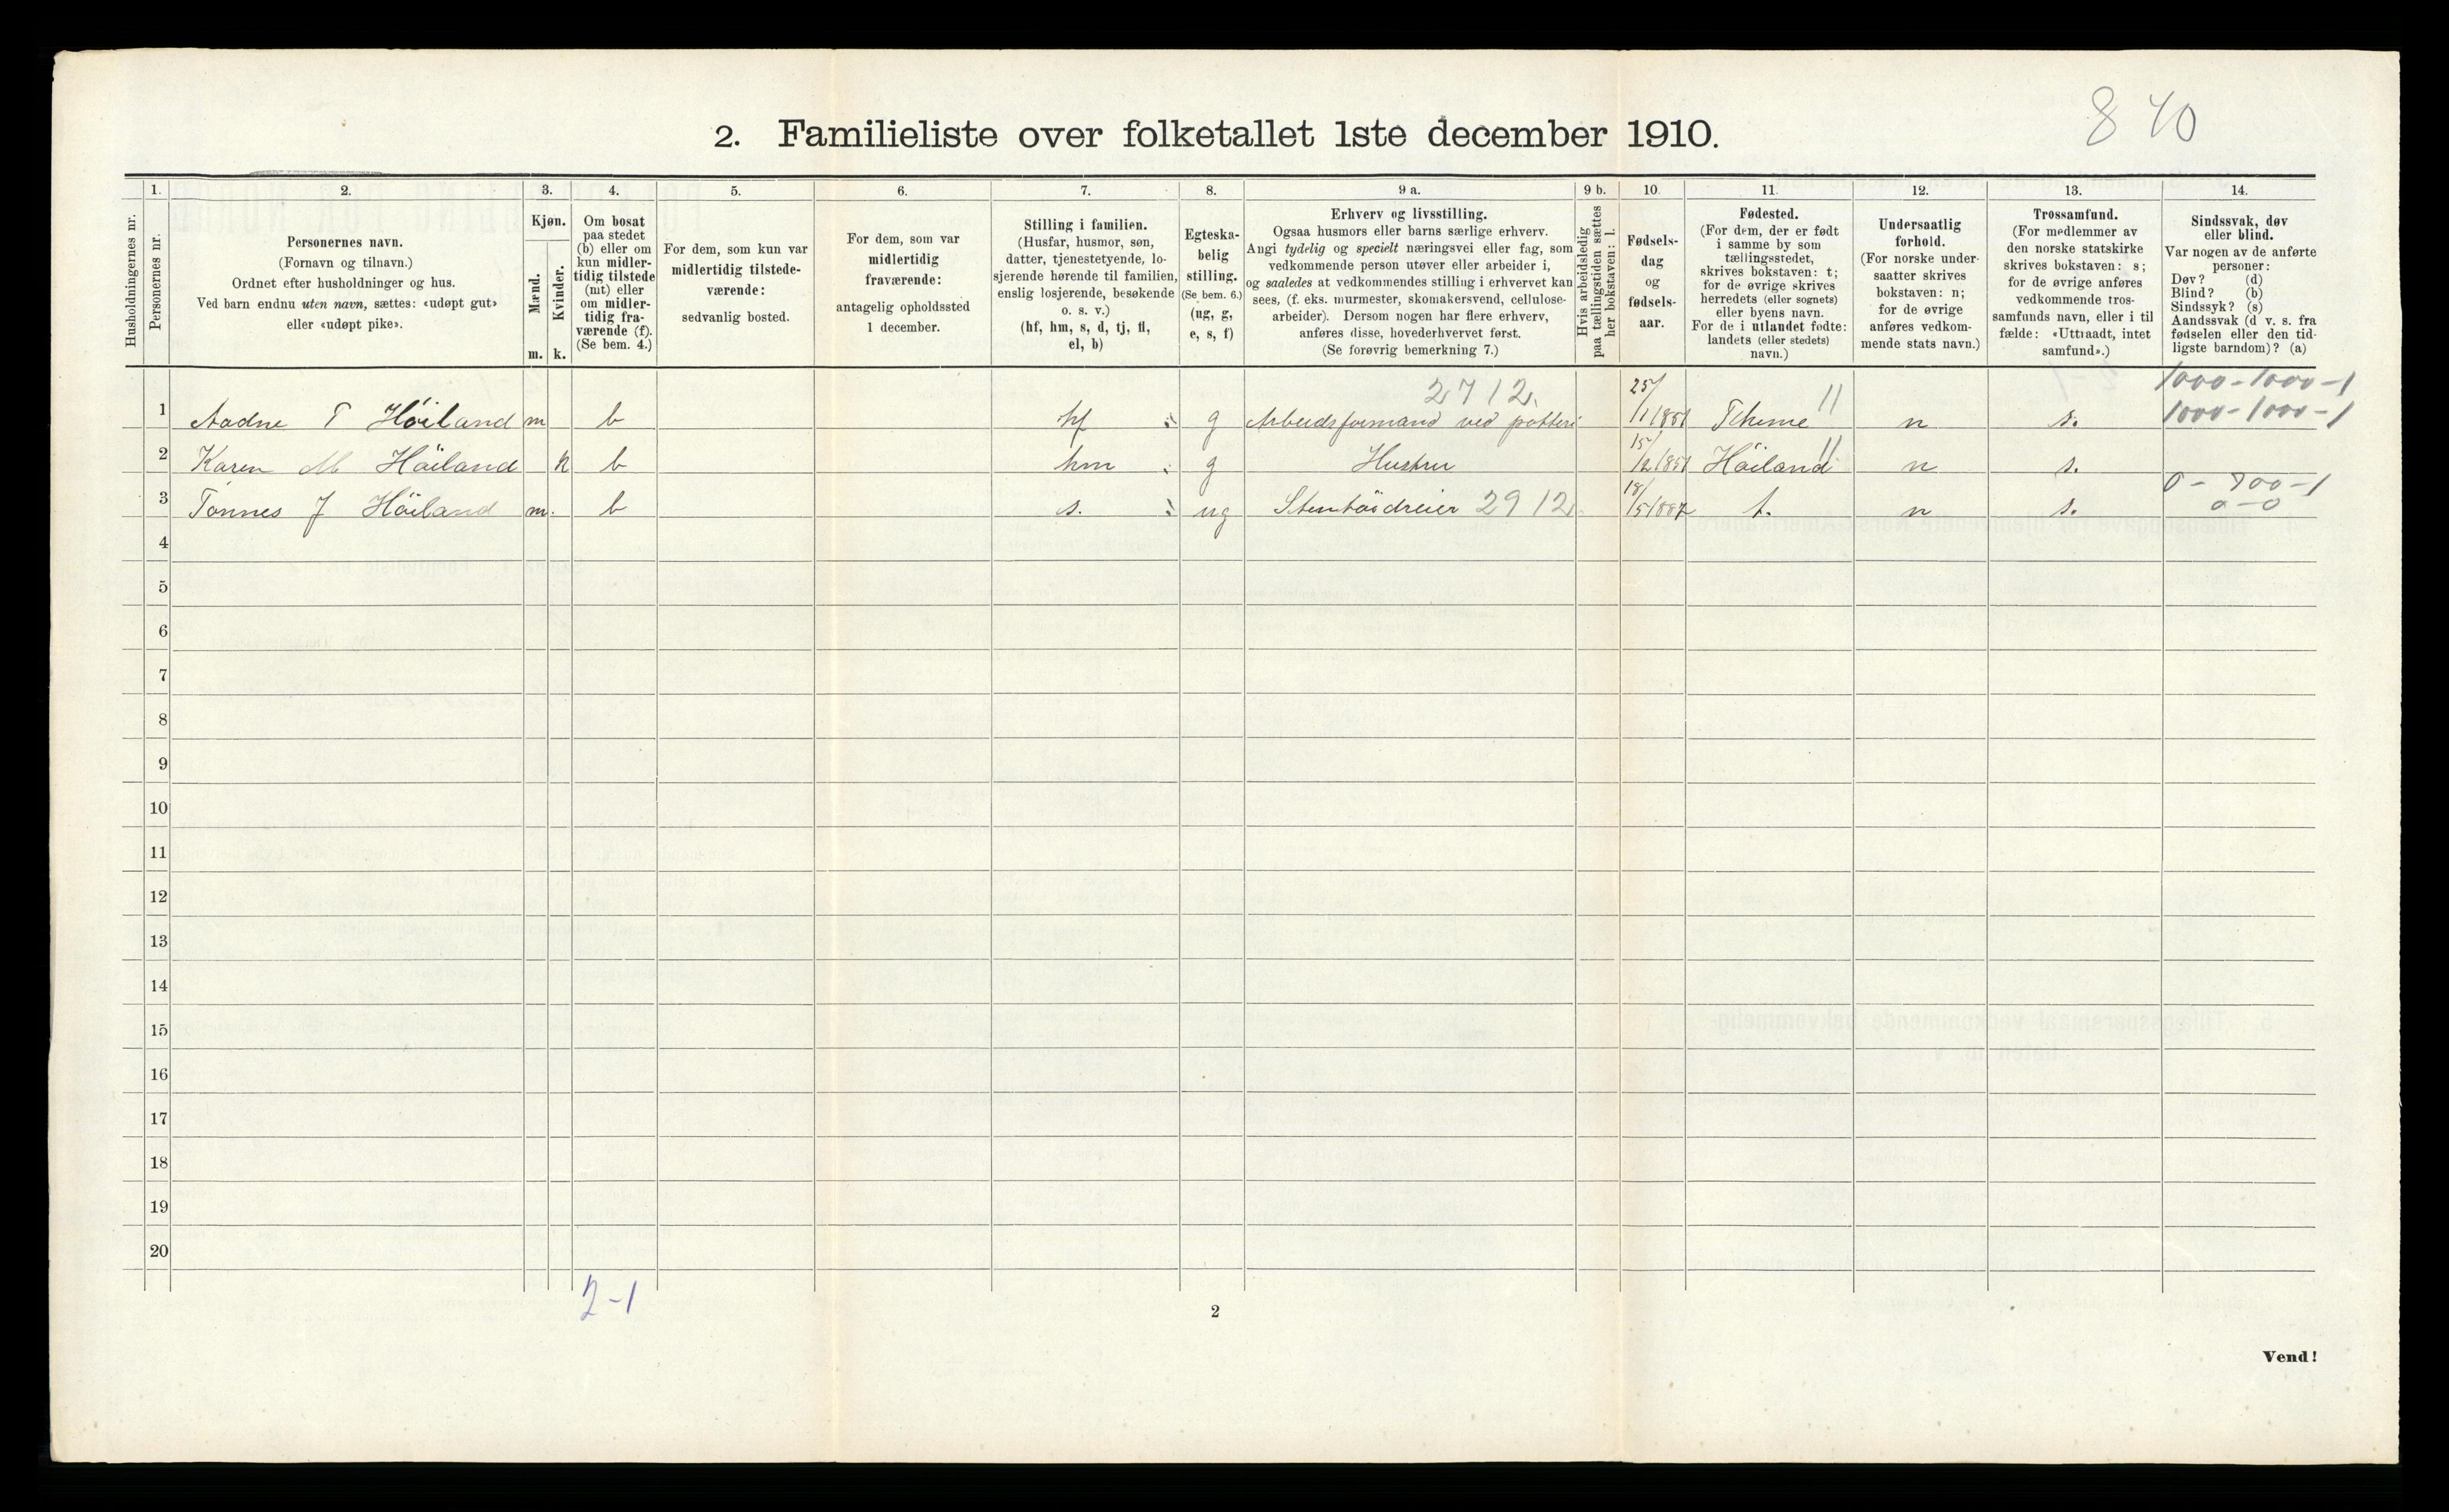 840
2. Familieliste over folketallet 1ste december 1910.
Husholdningernes nr.
1.
Personernes nr.
2.
Personernes navn.
(Fornavn og tilnavn.)
Ordnet efter husholdninger og hus.
Ved barn endnu uten navn, sættes: «udøpt gut»
eller «udøpt pike».
3.
Kjøn.
Mænd.
m.
Kvinder.
k.
4.
Om bosat
paa stedet
(b) eller om
kun midler-
tidig tilstede
(mt) eller
om midler-
tidig fra-
værende (f).
(Se bem. 4.)
5.
For dem, som kun var
midlertidig tilstede-
værende:
sedvanlig bosted.
6.
For dem, som var
midlertidig
fraværende:
antagelig opholdssted
1 december.
7.
Stilling i familien.
(Husfar, husmor, søn,
datter, tjenestetyende, lo-
sjerende hørende til familien,
enslig losjerende, besøkende
o. s. v.)
(hf, hm, s, d, tj, fl,
el, b)
8.
Egteska-
belig
stilling.
(Se bem. 6.)
(ug, g,
e, s, f)
9 a.
Erhverv og livsstilling.
Ogsaa husmors eller barns særlige erhverv.
Angi tydelig og specielt næringsvei eller fag, som
vedkommende person utøver eller arbeider i,
og saaledes at vedkommendes stilling i erhvervet kan
sees, (f. eks. murmester, skomakersvend, cellulose-
arbeider). Dersom nogen har flere erhverv,
anføres disse, hovederhvervet først.
(Se forøvrig bemerkning 7.)
9 b.
Hvis arbeidsledig
paa tællingstiden sættes
her bokstaven: l.
10.
Fødsels-
dag
og
fødsels-
aar.
11.
Fødested.
(For dem, der er født
i samme by som
tællingsstedet,
skrives bokstaven: t;
for de øvrige skrives
herredets (eller sognets)
eller byens navn.
For de i utlandet fødte:
landets (eller stedets)
navn.)
12.
Undersaatlig
forhold.
(For norske under-
saatter skrives
bokstaven: n;
for de øvrige
anføres vedkom-
mende stats navn.)
13.
Trossamfund.
(For medlemmer av
den norske statskirke
skrives bokstaven: s;
for de øvrige anføres
vedkommende tros-
samfunds navn, eller i til
fælde: «Uttraadt, intet
samfund».)
14.
Sindssvak, døv
eller blind.
Var nogen av de anførte
personer:
Døv? (d)
Blind? (b)
Sindssyk? (s)
Aandssvak (d v. s. fra
fødselen eller den tid-
ligste barndom)? (a)
2712. 1000-1000-1
1 Aadne T Höiland m b hf g Arbeidsformand ved potteri 25/1 1851 Thime 11 n s. 1000-1000-1
2 Karen M Höiland k b hm g Hustru 15/2 1851 Höiland 11 n s.
0-800-1
3 Tönnes J Höiland m. b s. ug Stentöidreier 2912. 18/5 1887 t. n s. 0-0
4
5
6
7
8
9
10
11
12
13
14
15
16
17
18
19
20
2-1
2
Vend!